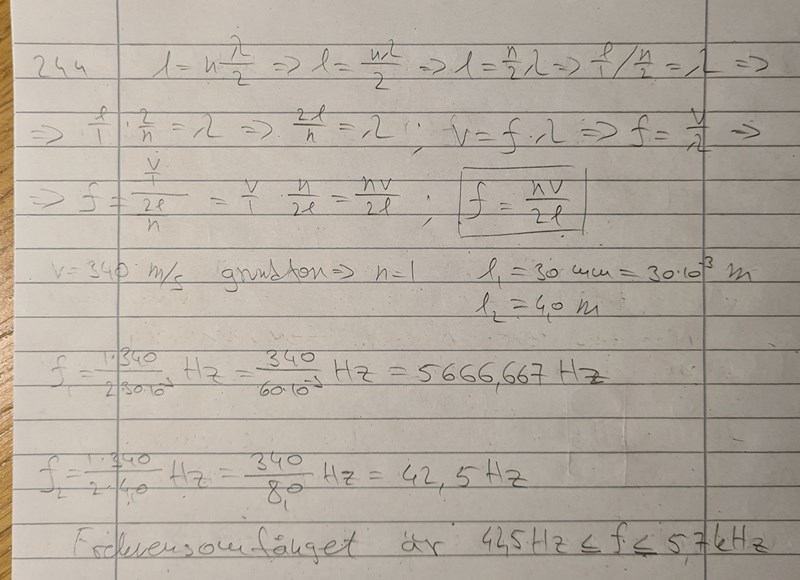 244 l = n λ/2 => l = nλ/2 => l = n/2 λ => l/1 / n/2 = λ =>
=> l/1 · 2/n = λ => 2l/n = λ ; v = f · λ => f = v/λ =>
=> f = (v/1)/(2l/n) = v/1 · n/2l = nv/2l ; f = nv/2l
v = 340 m/s grundton => n=1 l₁ = 30 mm = 30·10⁻³ m
l₂ = 4,0 m
f₁ = 1·340/2·30·10⁻³ Hz = 340/60·10⁻³ Hz = 5666,667 Hz
f₂ = 1·340/2·4,0 Hz = 340/8,0 Hz = 42,5 Hz
Frekvensomfånget är 42,5 Hz ≤ f ≤ 5,7 kHz